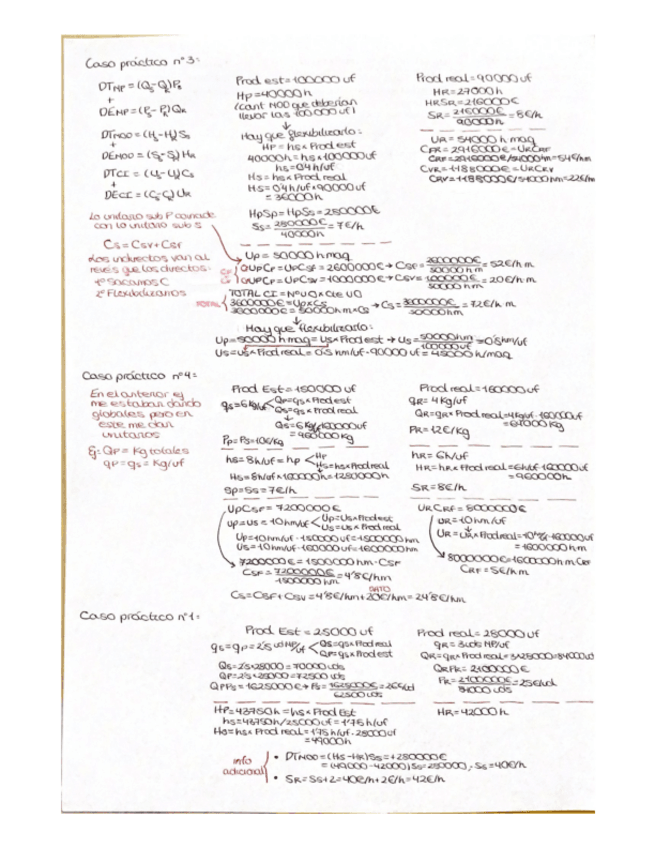 Caso práctico nº3:
DTMP = (Qs-QR)Ps
+
DEMP = (Ps-PR)QR
DTMOD = (Hs-HR)Ss
+
DEMOD = (Ss-SR)HR
DTCI = (Us-UR)Cs
+
DECI = (Cs-CR)UR
Lo unitario sub P coincide
con lo unitario sub S
Cs = Csv + Csf
Los indirectos van al
revés que los directos:
1º Sacamos C
2º Flexibilizamos
Prod est = 100000 uf
Hp = 40000 h
(cant MOD que deberían
llevar las 100 000 uf)
Hay que flexibilizarlo:
HP = hs × Prod est
40000h = hs × 100000uf
hs = 0'4 h/uf
Hs = hs × Prod real
Hs = 0'4 h/uf · 90000 uf
= 36000 h
HpSp = HpSs = 280000€
Ss = 280000€ / 40000h = 7€/h
Up = 50000 h maq
CF QUpCF = UpCsf = 2600000€ → Csf = 2600000€ / 50000 h m = 52€/h m
CV QUpCv = UpCsv = 1000000€ → Csv = 1000000€ / 50000 h m = 20€/h m
TOTAL TOTAL CI = Nº UO × Cte UO
3600000€ = Up × Cs
3600000€ = 50000h m × Cs → Cs = 3600000€ / 50000h m = 72€/h m
Hay que flexibilizarlo:
Up = 50000h maq = us × Prod est → us = 50000hm / 100000 uf = 0'5hm/uf
Us = us × Prod real = 0'5 hm/uf · 90000 uf = 45000 h/maq
Prod real = 90000 uf
HR = 27000 h
HRSR = 216000€
SR = 216000€ = 8€/h
UR = 54000 h maq
CFR = 2916000€ = URCRF
CRF = 2916000€/54000hm = 54€/hm
CVR = 1188000€ = URCRV
CRV = 1188000€/54000hm = 22€/hm
Caso práctico nº4:
En el anterior ej
me estaban dando
globales, pero en
este me dan
unitarios
Ej: QP = Kg totales
qp = qs = Kg/uf
Prod Est = 150000 uf
qs = 6 kg/uf < Qp = qs × Prod est
Qs = qs × Prod real
Qs = 6 kg/uf · 160000 uf
= 960000 kg
Pp = Ps = 10€/kg
hs = 8h/uf = hp < Hp
Hs = hs × Prod real
Hs = 8h/uf × 160000h = 1280000h
Sp = Ss = 7€/h
UpCsf = 7200000€
up = us = 10hm/uf < Up = us × Prod est
Us = us × Prod real
Up = 10hm/uf · 150000 uf = 1500000 hm
Us = 10hm/uf · 160000 uf = 1600000 hm
7200000€ = 1500000 hm · Csf
Csf = 7200000€ / 1500000 hm = 4'8€/hm
DATO
Cs = Csf + Csv = 4'8€/hm + 20€/hm = 24'8€/hm
Prod real = 160000 uf
qR = 4 kg/uf
QR = qR × Prod real = 4 kg/uf · 160000 uf
= 640000 kg
PR = 12€/kg
hR = 6h/uf
HR = hR × Prod real = 6h/uf · 160000 uf
= 960000 h
SR = 8€/h
URCRF = 8000000€
uR = 10 hm/uf
UR = uR × Prod real = 10 · 160000 uf
= 1600000 h m
8000000€ = 1600000h m CRF
CRF = 5€/hm
Caso práctico nº1:
Prod Est = 25000 uf
qs = qp = 2'5 ud MP/uf < Qs = qs × Prod real
Qp = qs × Prod est
Qs = 2'5 · 28000 = 70000 uds
Qp = 2'5 × = 72500 uds
QPPs = 1625000€ → Ps = 1625000€ / 62500 uds = 26€/ud
HP = 43750h = hs × Prod Est
hs = 43750h/25000 uf = 1'75 h/uf
Hs = hs × Prod real = 1'75 h/uf · 28000 uf
= 49000h
info
adicional
• DTMOD = (Hs-HR)Ss = +280000€
= (49000 - 42000) Ss = 280000; Ss = 40€/h
• SR = Ss + 2 = 40€/h + 2€/h = 42€/h
Prod real = 28000 uf
qR = 3 uds MP/uf
QR = qR × Prod real = 3 × 28000 = 84000 ud
QRPR = 2100000€
PR = 2100000€ / 84000 uds = 25€/ud
HR = 42000h